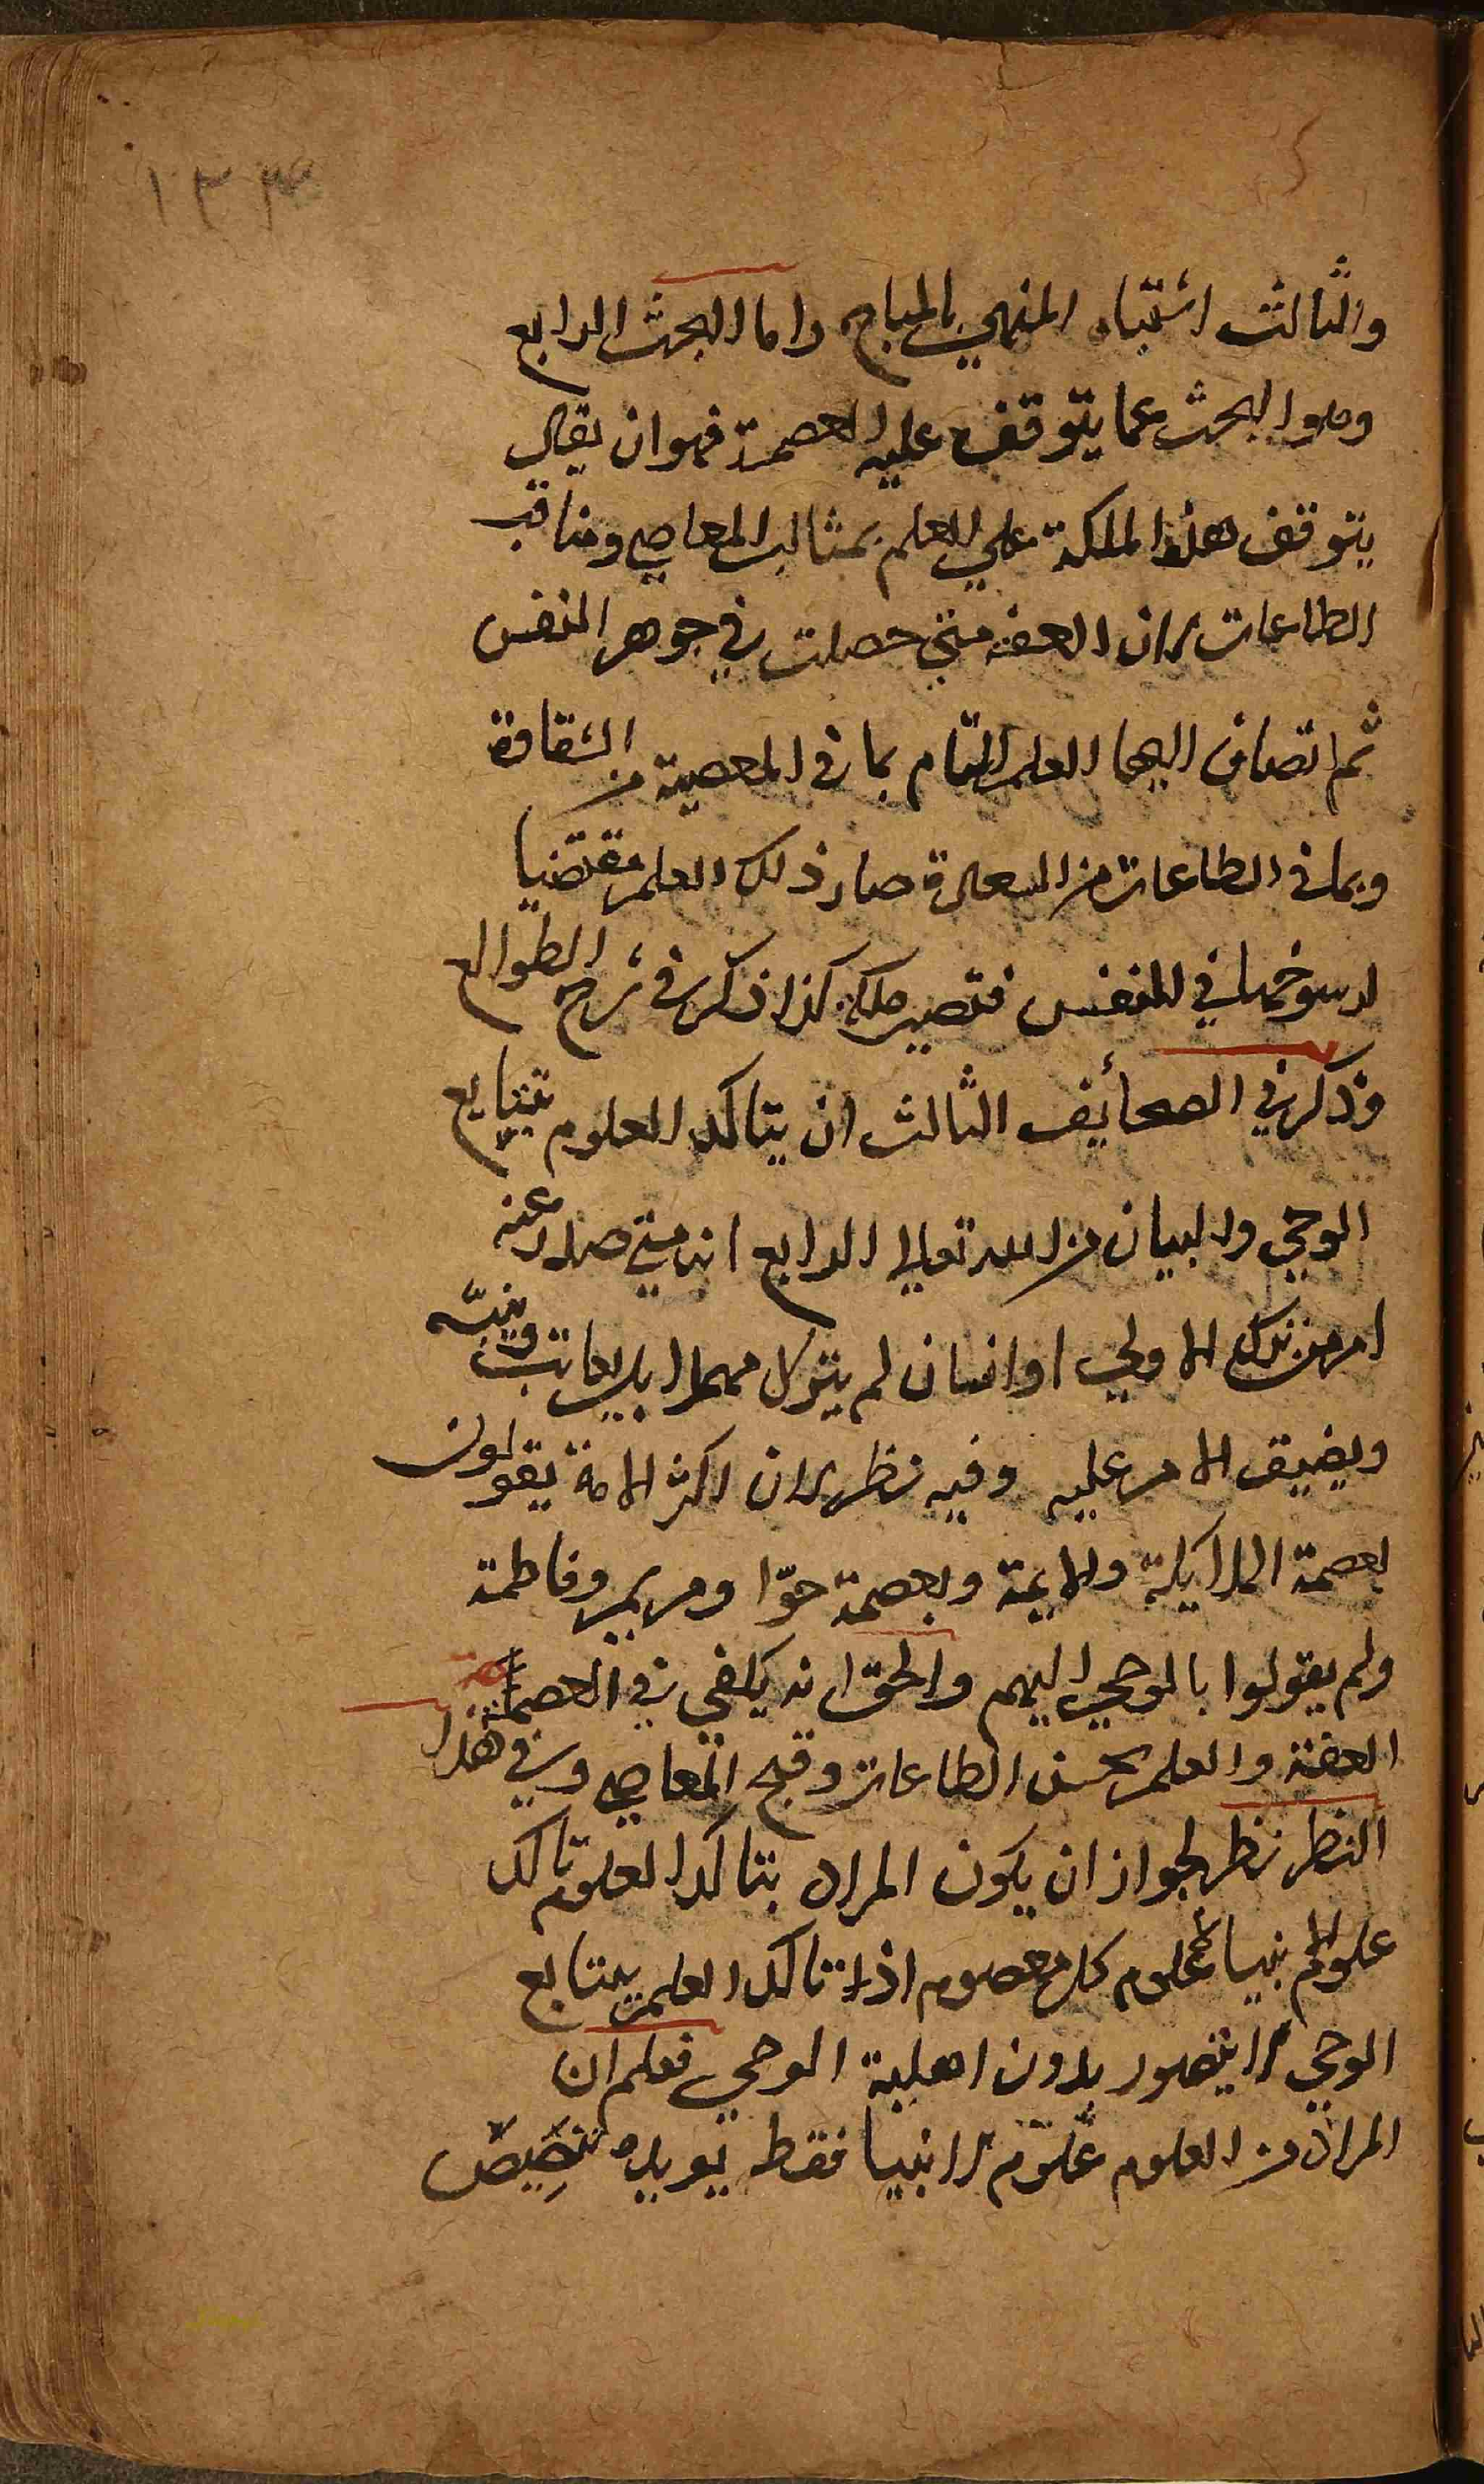 ١٣٣
والثالث اشتباه المنهي بالمباح واما البحث الرابع
وهو البحث عما يتوقف عليه العصمة فهو ان يقال
يتوقف هذا الملكة على العلم بمثالب المعاصي ومناقب
الطاعات لان العفة متى حصلت في جوهر النفس
ثم انضاف اليها العلم التام بما في المعصية من الشقاوة
وبما في الطاعات من السعادة صار ذلك العلم مقتضيا
لرسوخها في النفس فتصير ملكة كذا ذكر في شرح الطوالع
وذكر في الصحائف الثالث ان يتاكد العلوم بتتابع
الوحي والبيان من الله تعالى الرابع انه متى صدر عنه
امر من ترك الاولى او انسان لم يترك مهملا بل يعاتب وينبّه
ويضيق الامر عليه وفيه نظر لان اكثر الامة يقولون
بعصمة الملايكة والايمة وبعصمة حوّا ومريم وفاطمة
ولم يقولوا بالوحي اليهم والحق انه يكفي في العصمة
العفة والعلم بحسن الطاعات وقبح المعاصي وفي هذا
النظر نظر لجواز ان يكون المراد بتاكد العلوم تاكد
علوم الانبيا لا علوم كل معصوم اذ تاكد العلم بتتابع
الوحي لا يتصور بدون اهلية الوحي فعلم ان
المراد من العلوم علوم الانبيا فقط يويده تنصيص